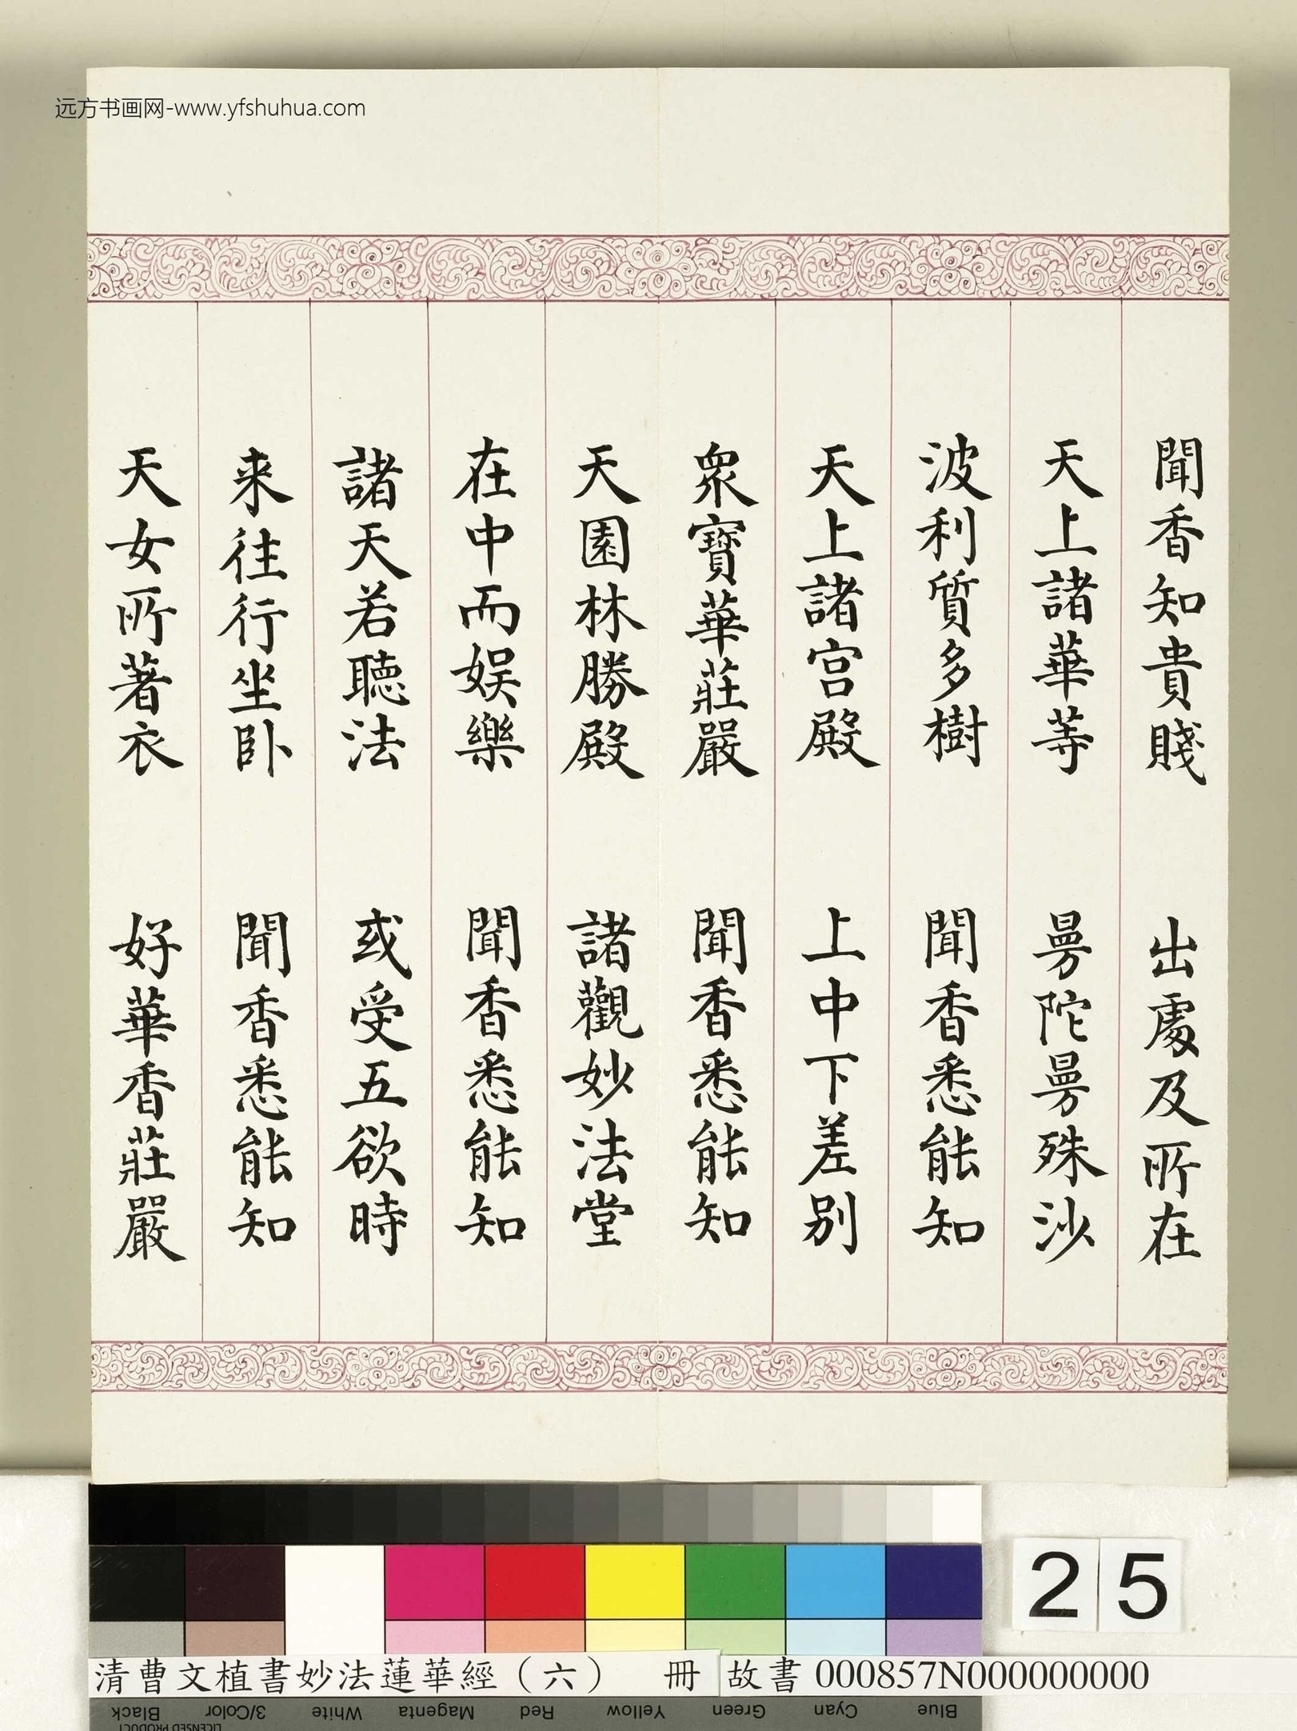 远方书画网-www.yfshuhua.com
聞香知貴賤 出處及所在
天上諸華等 曼陀曼殊沙
波利質多樹 聞香悉能知
天上諸宮殿 上中下差別
眾寶華莊嚴 聞香悉能知
天園林勝殿 諸觀妙法堂
在中而娛樂 聞香悉能知
諸天若聽法 或受五欲時
来往行坐卧 聞香悉能知
天女所著衣 好華香莊嚴
25
清曹文植書妙法蓮華經（六） 冊 故書 000857N000000000
Black 3/Color White Magenta Red Yellow Green Cyan Blue
LICENSED PRODUCT